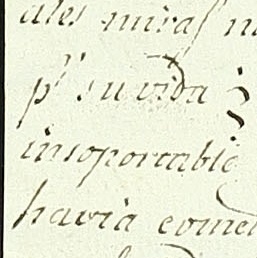 ales miras
pr su vida
insoportable
havia comet